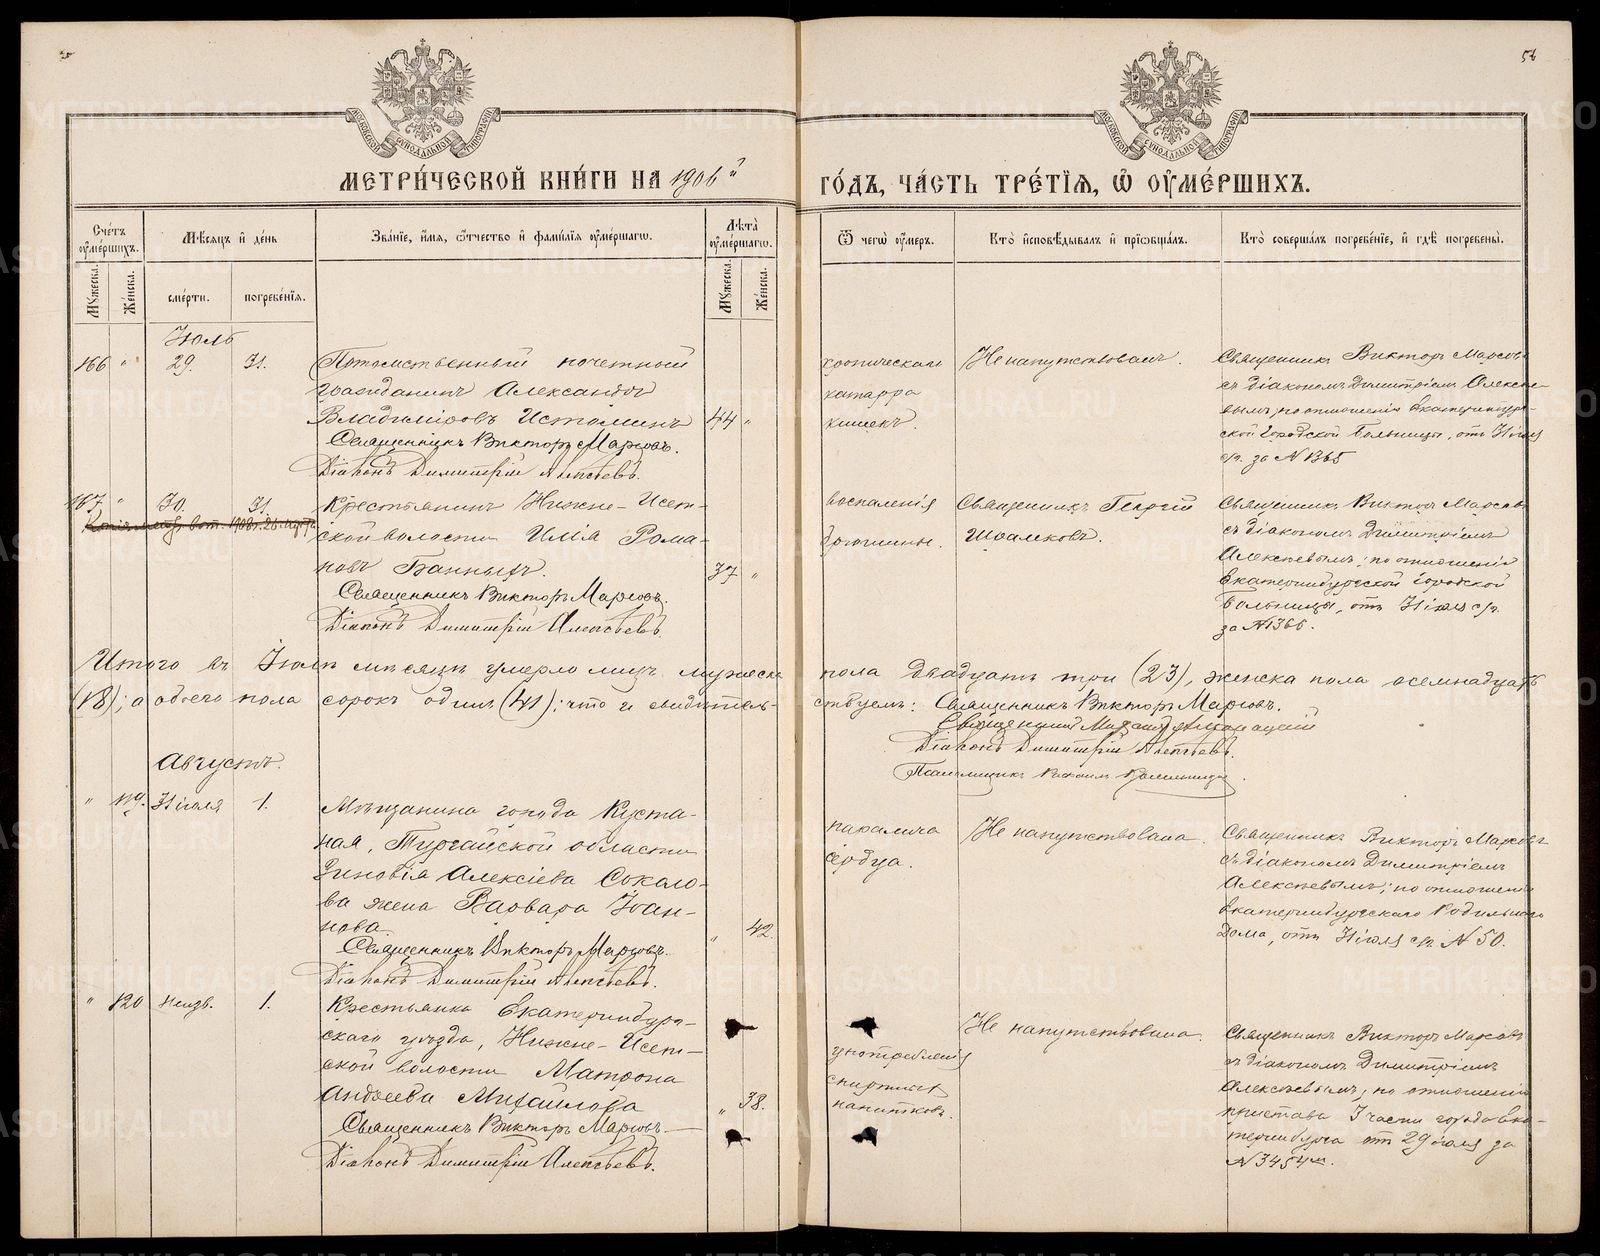 56
МЕТРИ́ЧЕСКОЙ КНИ́ГИ НА 1906й ГО́ДЪ, ЧА́СТЬ ТРЕ́ТІѦ, Ѡ҆ ОУ҆МЕ́РШИХЪ.
Сче́тъ оу҆ме́ршихъ. Мѣсяцъ и҆ де́нь Зва́нїе, и҆́мѧ, ѻ҆́тчество и҆ фами́лїѧ оу҆ме́ршагѡ. Лѣта̀ оу҆ме́ршагѡ. Ѿ чегѡ̀ оу҆́меръ. Кто̀ и҆сповѣ́дывалъ и҆ прїѡбща́лъ. Кто̀ соверша́лъ погребе́нїе, и҆ гдѣ̀ погребены̀.
Мꙋ́жеска. Же́нска. сме́рти. погребе́нїѧ. Мꙋ́жеска. Же́нска.
Іюль
166 " 29. 31. Потомственный почетный
гражданинъ Александръ
Владиміровъ Истоминъ 44 "
Священникъ Викторъ Марковъ.
Діаконъ Димитрій Алексѣевъ.
хроническаго
катарра
кишекъ.
Не напутствованъ.
Священникъ Викторъ Марковъ
съ діакономъ Димитріемъ Алексѣе-
вымъ; по отношенію Екатеринбург-
ской Городской Больницы, отъ 31 іюля
с/г. за № 1365
167 " 30. 31. Крестьянинъ Нижне-Исет-
ской волости Илія Рома-
новъ Банныхъ. 37 "
Священникъ Викторъ Марковъ.
Діаконъ Димитрій Алексѣевъ.
воспаленія
брюшины.
Священникъ Георгій
Шмаковъ.
Священникъ Викторъ Марковъ
съ діакономъ Димитріемъ
Алексѣевымъ; по отношенію
Екатеринбургской городской
Больницы, отъ 31 іюля с/г.
за № 1366.
Итого въ Іюлѣ мѣсяцѣ умерло лицъ мужеска пола двадцать три (23), женска пола осемнадцать
(18); а обоего пола сорокъ одинъ (41): что и свидѣтель- ствуемъ: Священникъ Викторъ Марковъ.
Священникъ Михаилъ
Діаконъ Димитрій Алексѣевъ.
Псаломщикъ
Августъ.
" 119. 31 іюля 1. Мѣщанина города Куста-
ная, Тургайской области
Зиновія Алексіева Соколо-
ва жена Варвара Іоан-
нова. " 42.
Священникъ Викторъ Марковъ.
Діаконъ Димитрій Алексѣевъ.
паралича
сердца.
Не напутствована.
Священникъ Викторъ Марковъ
съ діакономъ Димитріемъ
Алексѣевымъ; по отношенію
Екатеринбургскаго Родильнаго
Дома, отъ 31 іюля с/г. № 50.
" 120 Неизв. 1. Крестьянка Екатеринбург-
скаго уѣзда, Нижне-Исет-
ской волости Матрона
Андреева Михайлова " 38.
Священникъ Викторъ Марковъ.
Діаконъ Димитрій Алексѣевъ.
употребленія
спиртныхъ
напитковъ.
Не напутствована.
Священникъ Викторъ Марковъ
съ діакономъ Димитріемъ
Алексѣевымъ; по отношенію
пристава 3 части города Ека-
теринбурга отъ 29 іюля за
№ 3454мъ.